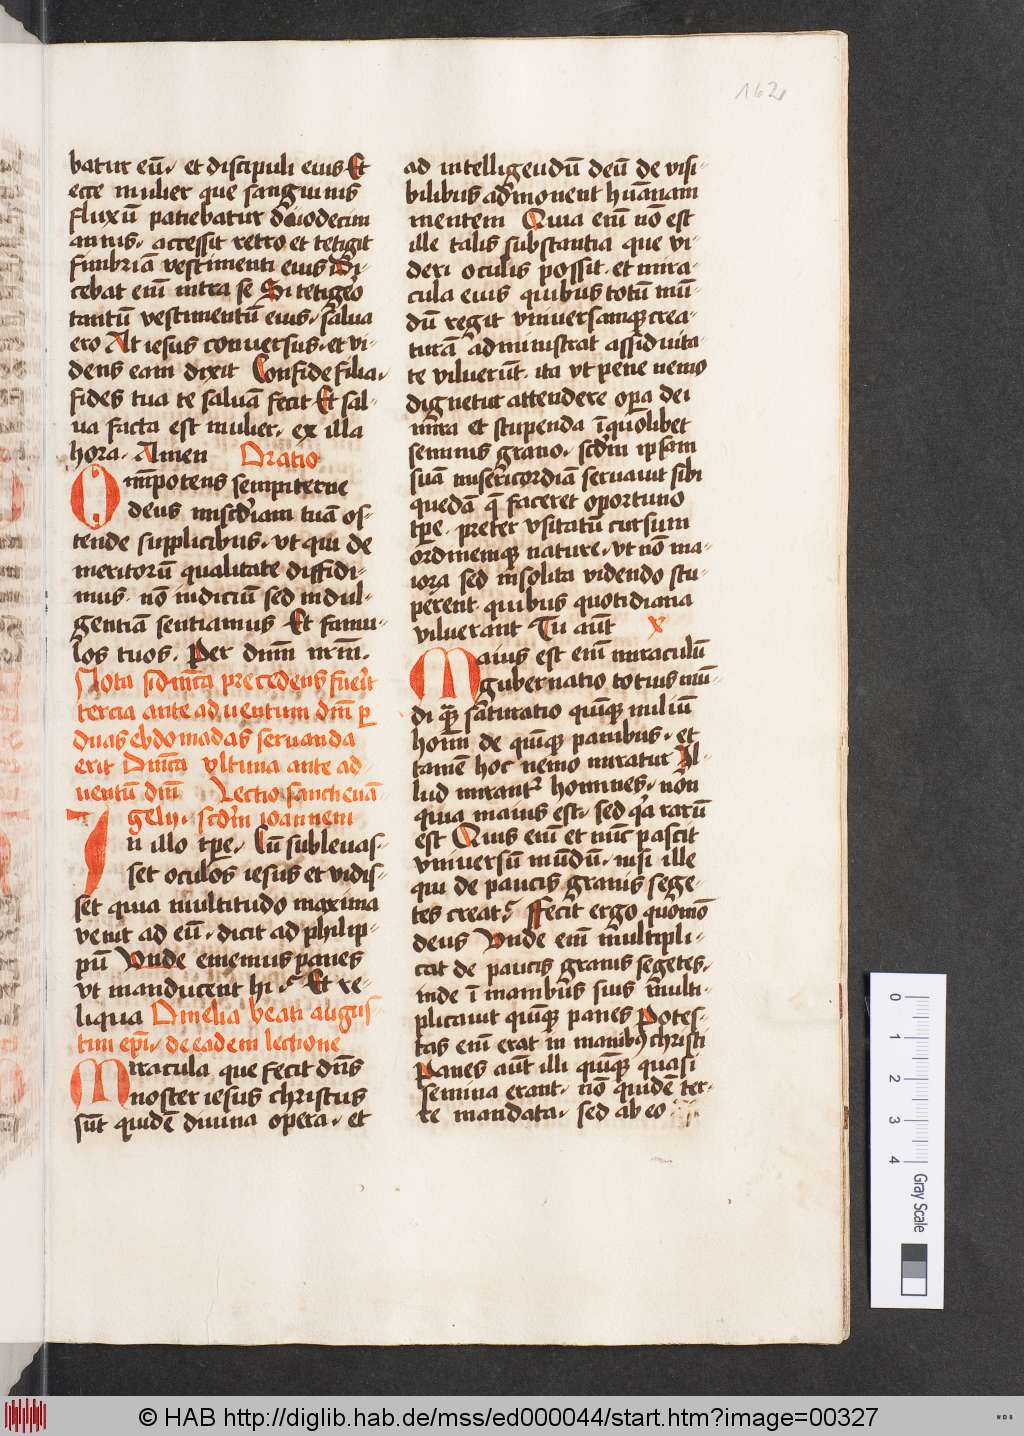 162
batur eū, et discipuli eius Et
ecce mulier que sanguinis
fluxū patiebatur duodecim
annis, accessit retro et tetigit
fimbriā vestimenti eius Di-
cebat enī intra se Si tetigero
tantū vestimentū eius, salua
ero At iesus conuersus, et vi-
dens eam dixit Confide filia,
fides tua te saluā fecit Et sal-
ua facta est mulier, ex illa
hora. Amen Oratio
Om̄potens sempiterne
deus miscdiam tuā os-
tende supplicibus, vt qui de
meritorū qualitate diffidi-
mus, nō iudiciū sed indul-
gentiā sentiamus Et famu-
los tuos. Per dnm̄ nrm̄.
Nota si dn̄ica precedens fuerit
tercia ante aduentum dn̄i
duas ebdomadas seruanda
erit Dn̄ica vltima ante ad-
uentū dn̄i Lectio sancti euā-
gelij. scdm̄ ioannem
In illo tp̄e, Cū subleuas-
set oculos iesus et vidis-
set quia multitudo maxima
venit ad eū, dicit ad philip-
pū Vnde ememus panes
vt manducent hi Et re-
liqua Omelia beati augus-
tini ep̄i, de eadem lectione
Miracula que fecit dn̄s
noster iesus christus
sūt quidē diuina opera, et
ad intelligendū deū de visi-
bilibus admonent humanam
mentem Quia enī nō est
ille talis substantia que vi-
deri oculis possit, et mira-
cula eius quibus totū mū-
dū regit vniuersamqꝫ crea-
turā administrat assiduita-
te viluerūt, ita vt pene nemo
dignetur attendere opa dei
mira et stupenda ī quolibet
seminis grano, scdm̄ ipsam
suā misericordiā seruauit sibi
quedā q̄ faceret oportuno
tp̄e, preter vsitatū cursum
ordinemqꝫ nature, vt nō ma-
iora sed insolita videndo stu-
perent, quibus quotidiana
viluerant Tu aut̄ x
Maius est enī miraculū
gubernatio totius mū-
di qꝫ saturatio quīqꝫ miliū
homī de quīqꝫ panibus, et
tamē hoc nemo miratur Il-
lud mirantur homines, non
quia maius est, sed qa rarū
est Quis enī et nūc pascit
vniuersū mūdū, nisi ille
qui de paucis granis sege-
tes creat Fecit ergo quōmō
deus Vnde enī multipli-
cat de paucis granis segetes,
inde ī manibus suis multi-
plicauit quīqꝫ panes Potes-
tas enī erat in manibꝫ christi
Panes aut̄ illi quīqꝫ quasi
semina erant, nō quidē ter-
re mandata, sed ab eo
0
1
2
3
4
Gray Scale
© HAB http://diglib.hab.de/mss/ed000044/start.htm?image=00327